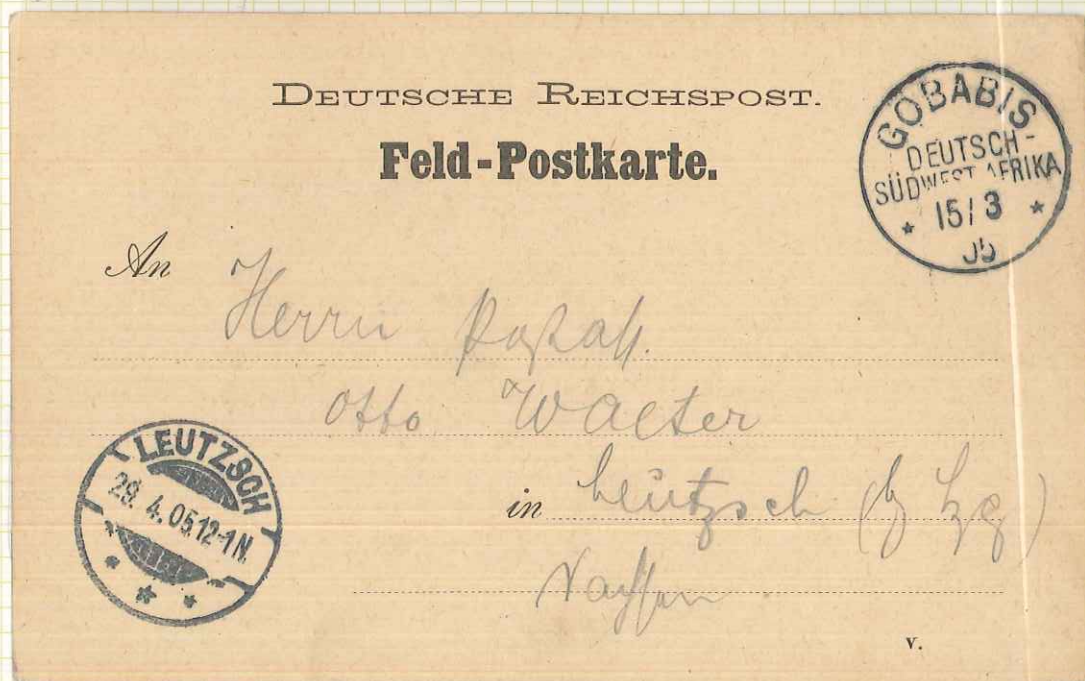 DEUTSCHE REICHSPOST.
Feld-Postkarte.
GOBABIS
DEUTSCH-
SÜDWEST AFRIKA
* 15/3 *
05
An Herrn
Otto Walter
in Leutzsch (b Lzg)
Sachsen
LEUTZSCH
29.4.05.12-1N.
* * *
V.